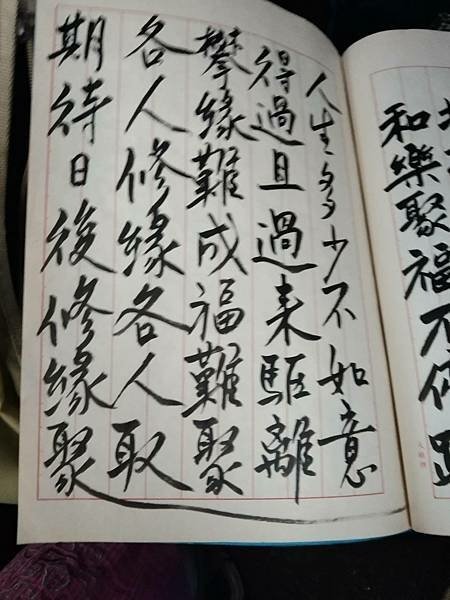 和樂聚福不
人生多少不如意
得過且過来驅離
攀緣難成福難聚
各人修緣各人取
期待日後修緣聚